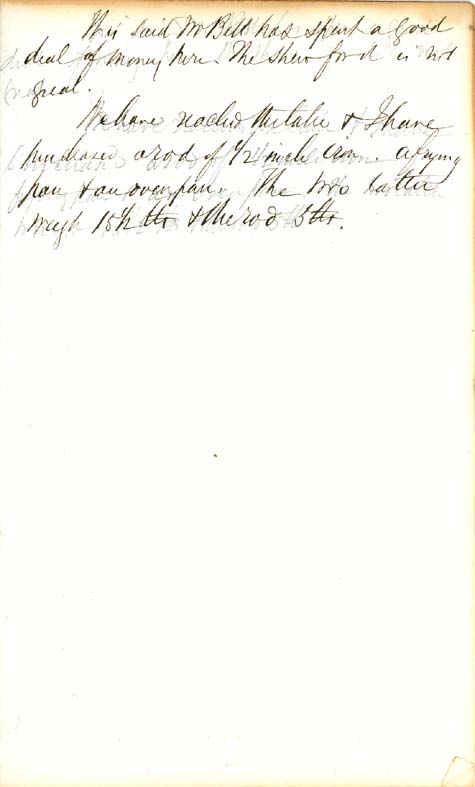 This said Mr Bell has spent a good
deal of money here. The show for it is not
great.
We have reached the lake & I have
purchased a rod of 1/2 inch iron. a frying
pan & an oven pan. The two latter
weigh 15½ lbs & the rod 5 lbs.